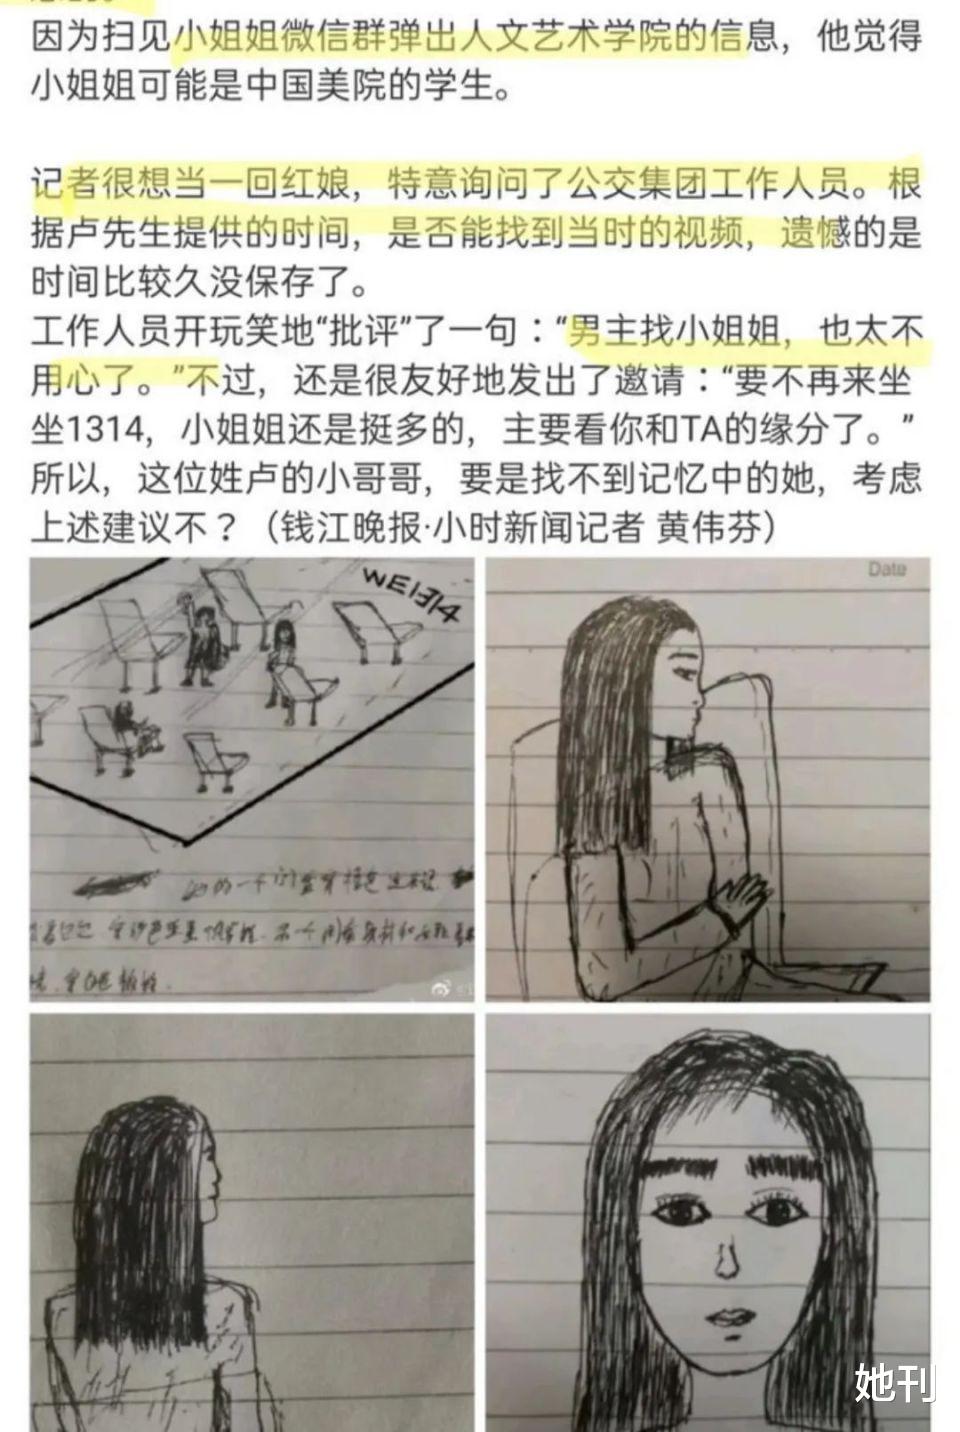 因为扫见小姐姐微信群弹出人文艺术学院的信息，他觉得
小姐姐可能是中国美院的学生。
记者很想当一回红娘，特意询问了公交集团工作人员。根
据卢先生提供的时间，是否能找到当时的视频，遗憾的是
时间比较久没保存了。
工作人员开玩笑地“批评”了一句：“男主找小姐姐，也太不
用心了。”不过，还是很友好地发出了邀请：“要不再来坐
坐1314，小姐姐还是挺多的，主要看你和TA的缘分了。”
所以，这位姓卢的小哥哥，要是找不到记忆中的她，考虑
上述建议不？（钱江晚报·小时新闻记者 黄伟芬）
WE1314
Date
她刊